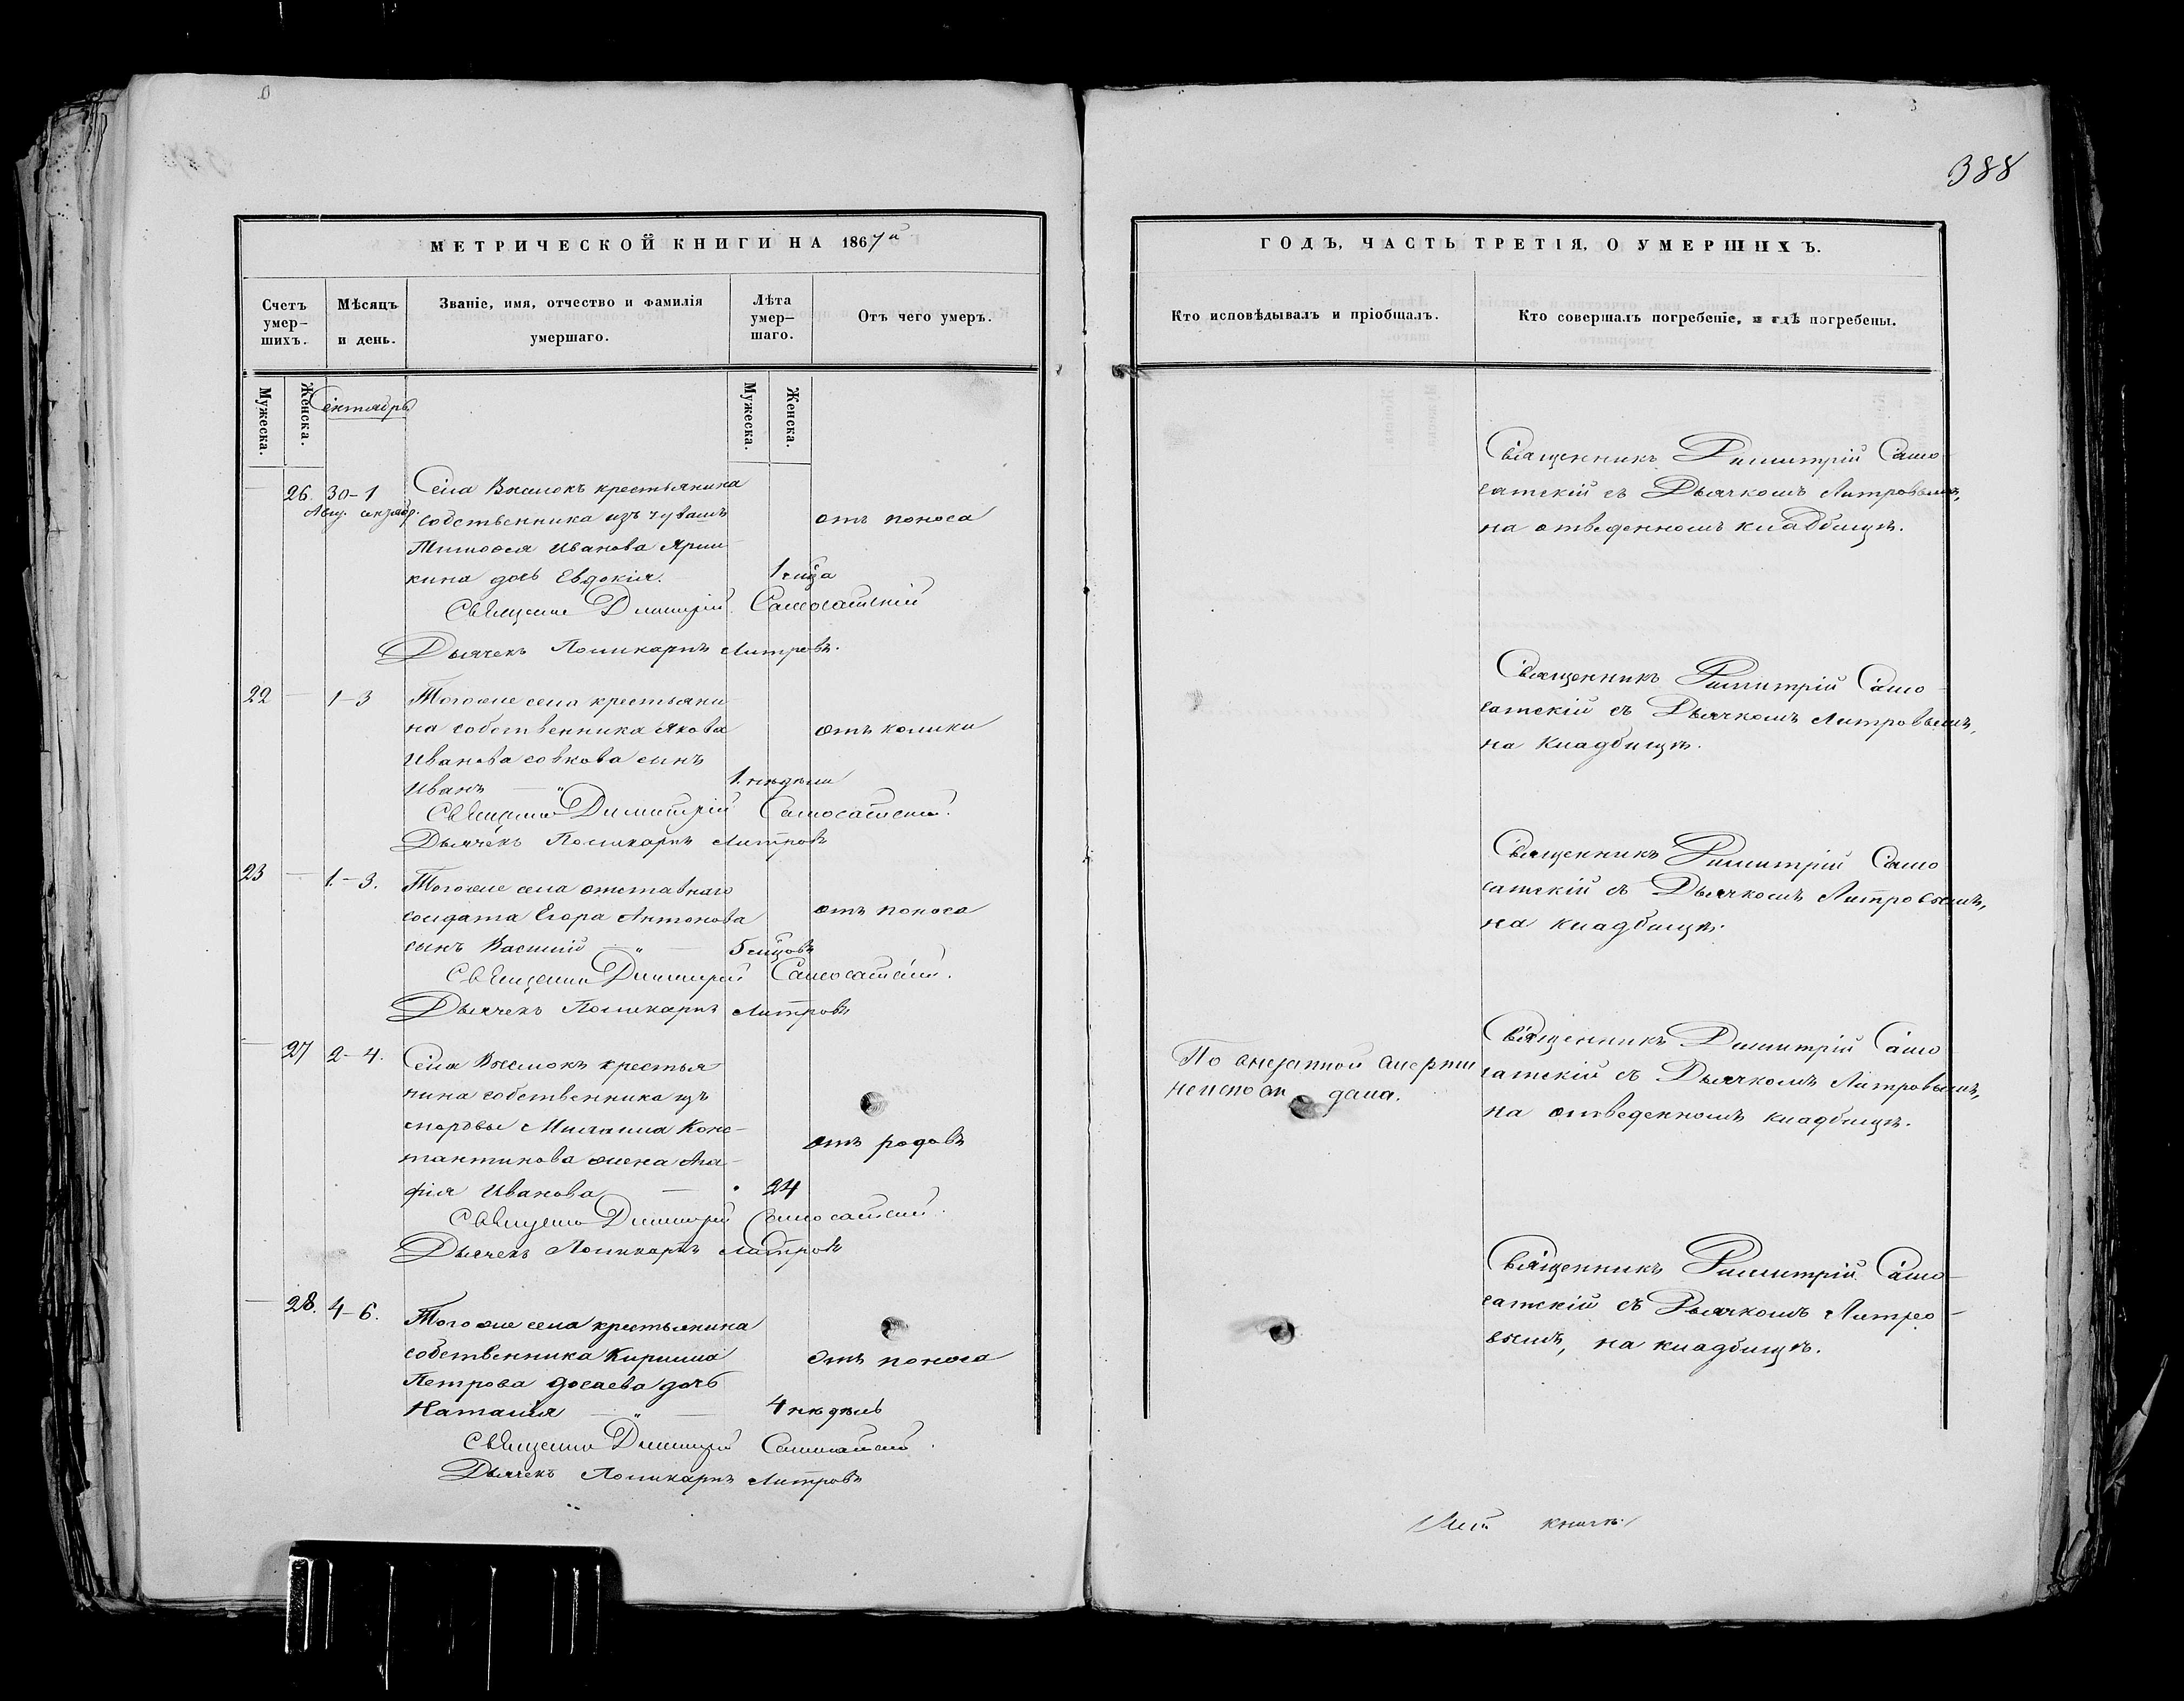 388
МЕТРИЧЕСКОЙ КНИГИ НА 1867й
Счетъ умер–шихъ.
Мѣсяцъ и день.
Званіе, имя, отчество и фамилія умершаго.
Лѣта умер–шаго.
Отъ чего умеръ.
Мужеска.
Женска.
Сентябрь
Мужеска.
Женска.
26. 30–1 Села крестьянина
собственника изъ чувашъ отъ поноса
Тимофея Иванова Ярш–
кина дочь Евдокія. 1
Димитрій Самосатскій
Дьячекъ Поликарпъ Литровъ.
22 — 1–3 Тогоже села крестьяни
на собственника Якова отъ колики
Иванова Совкова сынъ
Иванъ — " 1. недѣли
Димитрій Самосатскій.
Дьячекъ Поликарпъ Литровъ
23 — 1.–3. Тогоже села отставнаго
солдата Егора Антонова отъ поноса
сынъ Василій — " — 5
Димитрій Самосатскій.
Дьячекъ Поликарпъ Литровъ
— 27 2–4. Села крестья
нина собственника изъ
мордвы Конс–
тантинова жена Ага– отъ родовъ
фія Иванова — 24
Димитрій Самосатскій.
Дьячекъ Поликарпъ Литровъ
— 28. 4–6. Тогоже села крестьянина
собственника Кирилла отъ поноса
Петрова Досаева дочь
Наталія — " — 4 недѣль
Димитрій Самосатскій.
Дьячекъ Поликарпъ Литровъ
ГОДЪ, ЧАСТЬ ТРЕТІЯ, О УМЕРШИХЪ.
Кто исповѣдывалъ и пріобщалъ.
Кто совершалъ погребеніе, и гдѣ погребены.
Священникъ Димитрій Само
сатскій съ Дьячкомъ Литровымъ,
на отведенномъ кладбищѣ.
Священникъ Димитрій Само–
сатскій съ Дьячкомъ Литровымъ,
на кладбищѣ.
Священникъ Димитрій Само
сатскій съ Дьячкомъ Литровымъ,
на кладбищѣ.
По внезапной смерти
Священникъ Димитрій Само
сатскій съ Дьячкомъ Литровымъ,
на отведенномъ кладбищѣ.
Священникъ Димитрій Само–
сатскій съ Дьячкомъ Литро–
вымъ, на кладбищѣ.